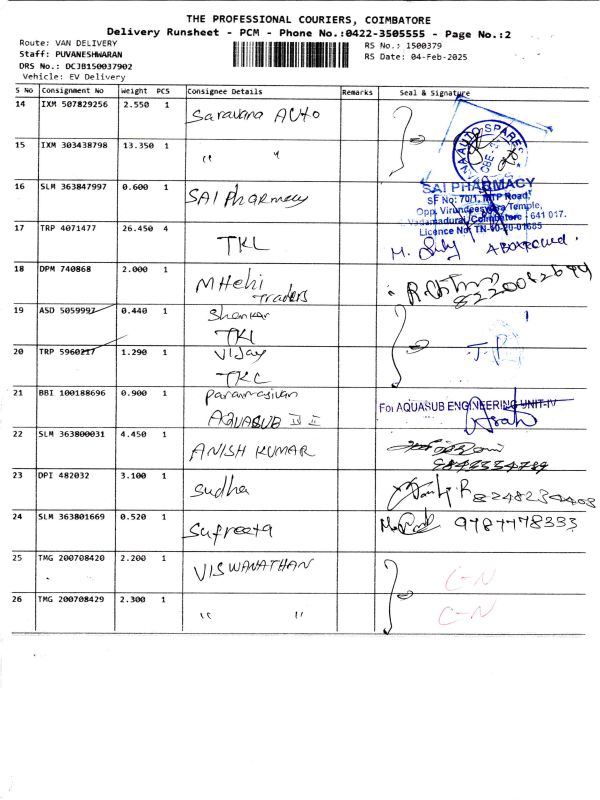 THE PROFESSIONAL COURIERS, COIMBATORE
Delivery Runsheet - PCM - Phone No.:0422-3505555 - Page No.:2
Route: VAN DELIVERY
RS No.: 1500379
Staff: PUVANESHWARAN
RS Date: 04-Feb-2025
DRS No.: DCJB150037902
Vehicle: EV Delivery
S No Consignment No Weight PCS Consignee Details Remarks Seal & Signature
14 IXM 507829256 2.550 1 Saravana Auto
15 IXM 303438798 13.350 1 " "
16 SLM 363847997 0.600 1 SAI Pharmacy
SAI PHARMACY
SF No: 70/1, MTP Road,
Opp. Virundeeswara Temple,
Vadamadurai, Coimbatore - 641 017.
Licence No: TN-60-20-01685
17 TRP 4071477 26.450 4 TKL
18 DPM 740868 2.000 1 MHehi Traders
19 ASD 5059997 0.440 1 Shankar
TKL
20 TRP 5960217 1.290 1 Vijay
TKL
21 BBI 100188696 0.900 1 Paramasivan
AQUASUB
For AQUASUB ENGINEERING UNIT-IV
22 SLM 363800031 4.450 1 ANISH KUMAR
9842334789
23 DPI 482032 3.100 1 Sudha
8248234403
24 SLM 363801669 0.520 1 Supreeta
9787778333
25 TMG 200708420 2.200 1 VISWANATHAN C-N
26 TMG 200708429 2.300 1 " " C-N